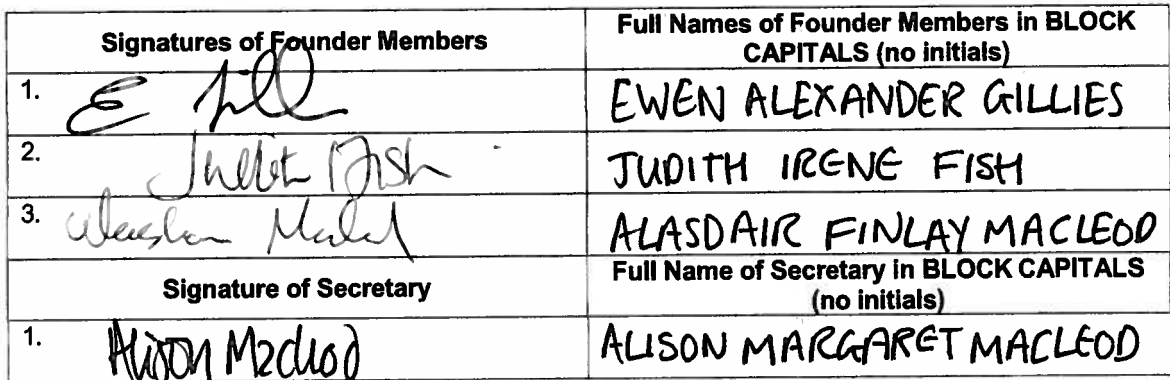 Signatures of Founder Members
Full Names of Founder Members in BLOCK
CAPITALS (no initials)
1.
E Gill
EWEN ALEXANDER GILLIES
2.
Judith Fish
JUDITH IRENE FISH
3.
ALASDAIR FINLAY MACLEOD
Signature of Secretary
Full Name of Secretary in BLOCK CAPITALS
(no initials)
1.
Alison Macleod
ALISON MARGARET MACLEOD